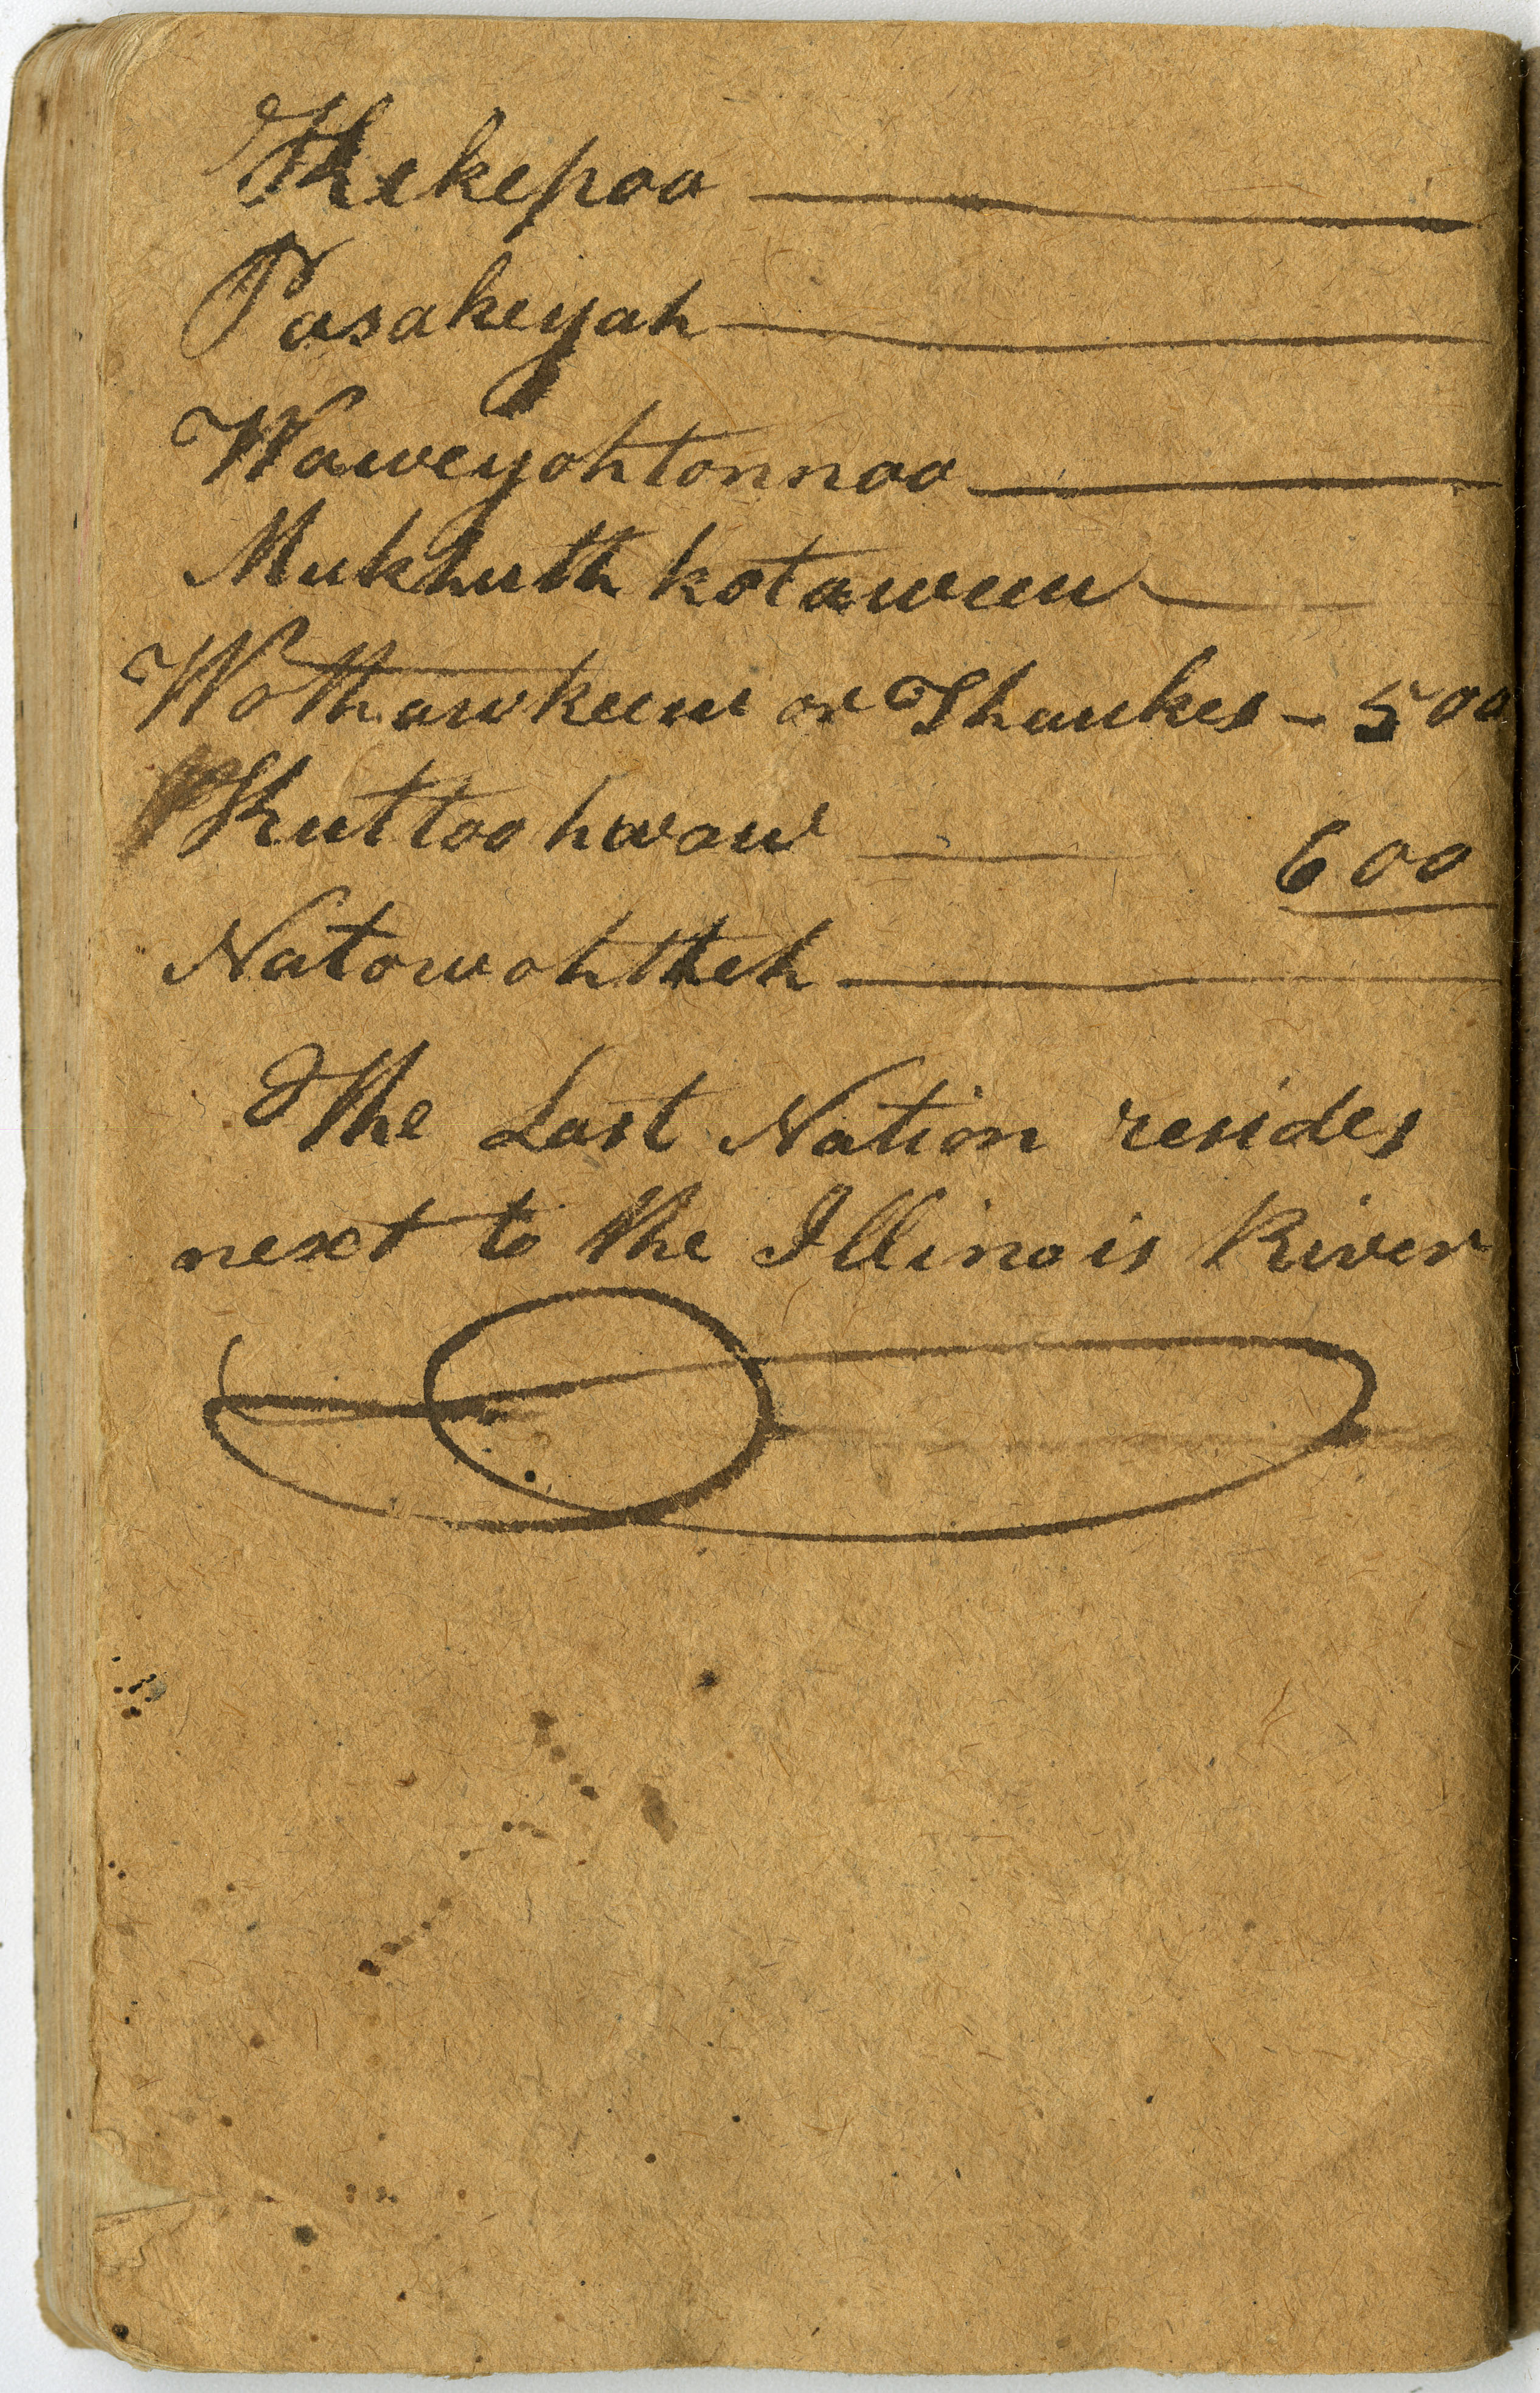 Thekepoo
Pasakeyah
Waweyohtonnoo
Mukhuthkotawuw
Wothawkeuw or Thaukes - 500
Kuttoohwow 600
Natowohtheh
The Last Nation resides
next to the Illinois River